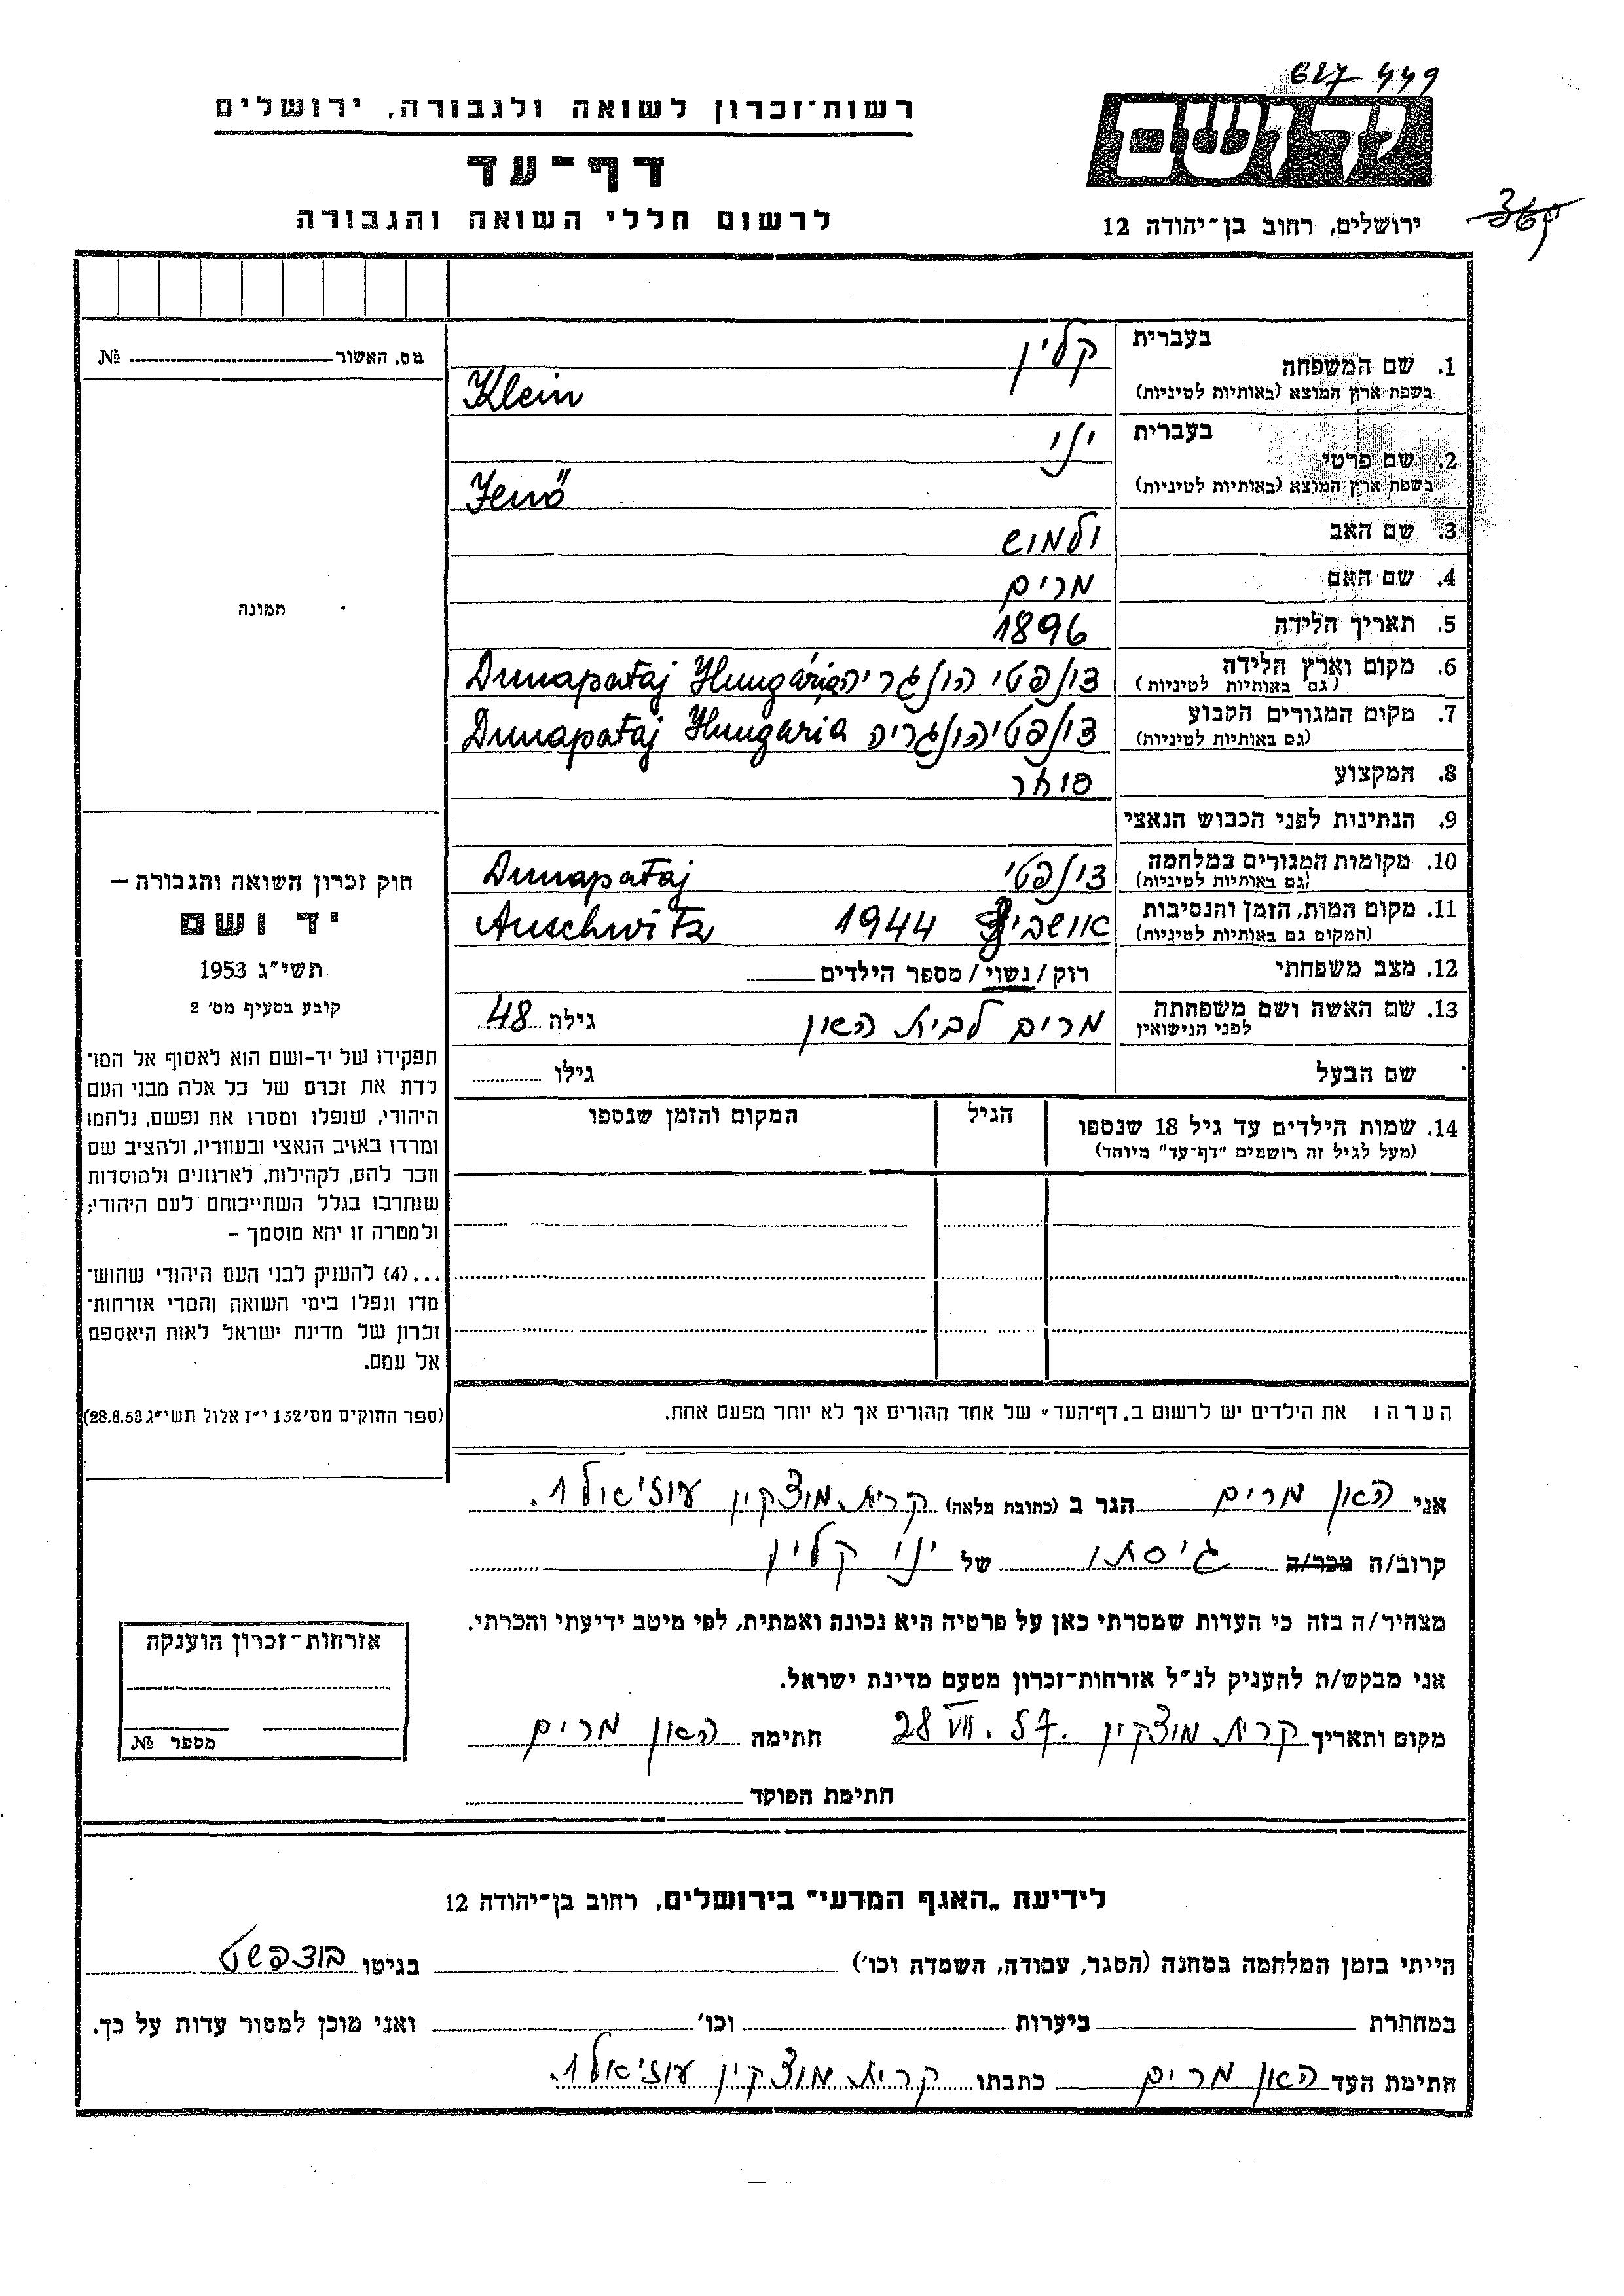 627 449
רשות־זכרון לשואה ולגבורה, ירושלים
יד ושם
דף־עד
לרשום חללי השואה והגבורה
ירושלים, רחוב בן־יהודה 12
369
בעברית
1. שם המשפחה קלין
בשפת ארץ המוצא (באותיות לטיניות) Klein
בעברית
2. שם פרטי יני
בשפת ארץ המוצא (באותיות לטיניות) Jenő
3. שם האב ולמוש
4. שם האם מרים
5. תאריך הלידה 1896
6. מקום וארץ הלידה דונפטי הונגריה Dunapataj Hungária
(גם באותיות לטיניות)
7. מקום המגורים הקבוע דונפטי הונגריה Dunapataj Hungária
(גם באותיות לטיניות)
8. המקצוע סוחר
9. הנתינות לפני הכבוש הנאצי
10. מקומות המגורים במלחמה דונפטי Dunapataj
(גם באותיות לטיניות)
11. מקום המות, הזמן והנסיבות אושביץ 1944 Auschwitz
(המקום גם באותיות לטיניות)
12. מצב משפחתי רוק / נשוי / מספר הילדים
13. שם האשה ושם משפחתה מרים לבית האן גילה 48
לפני הנישואין
שם הבעל גילו
14. שמות הילדים עד גיל 18 שנספו הגיל המקום והזמן שנספו
(מעל לגיל זה רושמים "דף־עד" מיוחד)
הערה: את הילדים יש לרשום ב„דף־העד" של אחד ההורים אך לא יותר מפעם אחת.
מס. האשור №
תמונה
חוק זכרון השואה והגבורה –
יד ושם
תשי"ג 1953
קובע בסעיף מס' 2
תפקידו של יד-ושם הוא לאסוף אל המו־
לדת את זכרם של כל אלה מבני העם
היהודי, שנפלו ומסרו את נפשם, נלחמו
ומרדו באויב הנאצי ובעוזריו, ולהציב שם
וזכר להם, לקהילות, לארגונים ולמוסדות
שנחרבו בגלל השתייכותם לעם היהודי;
ולמטרה זו יהא מוסמך –
...(4) להעניק לבני העם היהודי שהוש־
מדו ונפלו בימי השואה והמרי אזרחות־
זכרון של מדינת ישראל לאות היאספם
אל עמם.
(ספר החוקים מס' 132 י"ז אלול תשי"ג 28.8.53)
אני האן מרים הגר ב (כתובת מלאה) קרית מוצקין עוזיאל 1.
קרוב/ה מכר/ה גיסתו של יני קלין
מצהיר/ה בזה כי העדות שמסרתי כאן על פרטיה היא נכונה ואמתית, לפי מיטב ידיעתי והכרתי.
אני מבקש/ת להעניק לנ"ל אזרחות־זכרון מטעם מדינת ישראל.
מקום ותאריך קרית מוצקין 28 VII. 57. חתימה האן מרים
חתימת הפוקד
אזרחות־זכרון הוענקה
מספר №
לידיעת „האגף המדעי" בירושלים, רחוב בן־יהודה 12
הייתי בזמן המלחמה במחנה (הסגר, עבודה, השמדה וכו') בגיטו בודפשט
במחתרת ביערות וכו' ואני מוכן למסור עדות על כך.
חתימת העד האן מרים כתבתו קרית מוצקין עוזיאל 1.